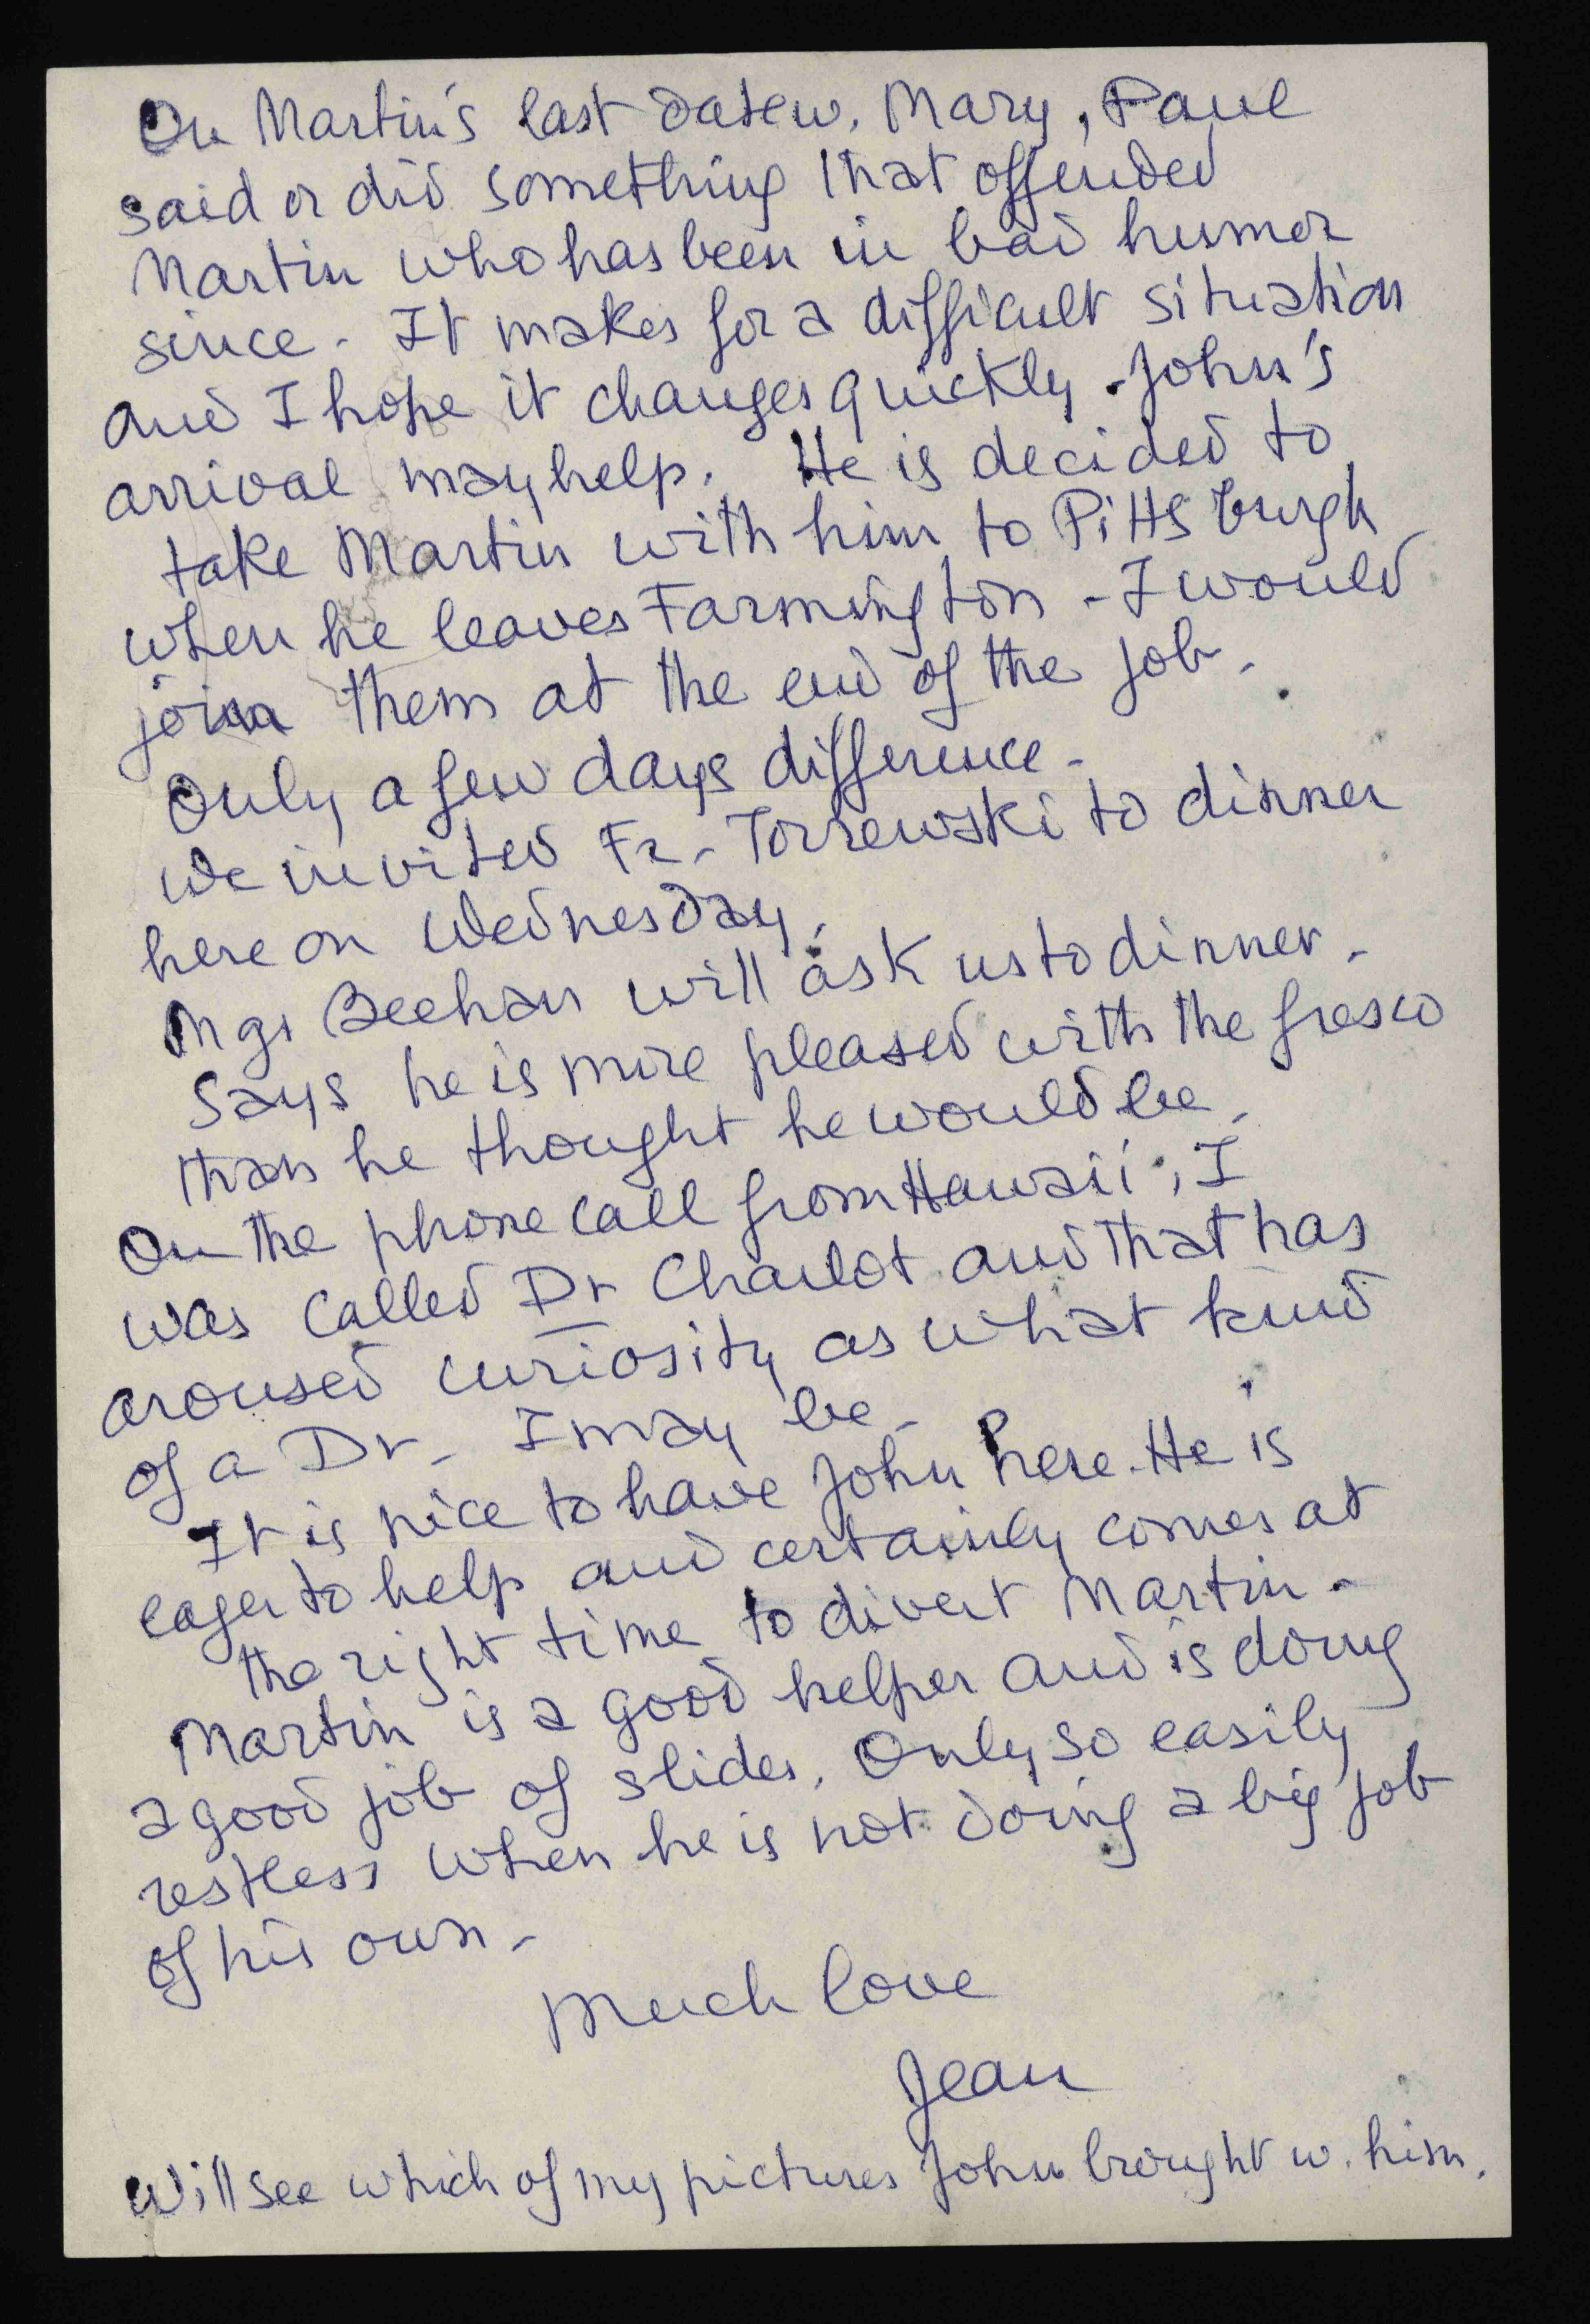 On Martin's last date w. Mary, Paul
said or did something that offended
Martin who has been in bad humor
since. It makes for a difficult situation
and I hope it changes quickly. John's
arrival may help. He is decided to
take Martin with him to Pittsburgh
when he leaves Farmington - I would
join them at the end of the job.
Only a few days difference.
We invited Fr. Torrewski to dinner
here on Wednesday.
Mgr Beehan will ask us to dinner.
Says he is more pleased with the fresco
than he thought he would be.
On the phone call from Hawaii, I
was called Dr Charlot and that has
aroused curiosity as what kind
of a Dr. I may be.
It is nice to have John here. He is
eager to help and certainly comes at
the right time to divert Martin.
Martin is a good helper and is doing
a good job of slides. Only so easily
restless when he is not doing a big job
of his own.
Much love
Jean
Will see which of my pictures John brought w. him.